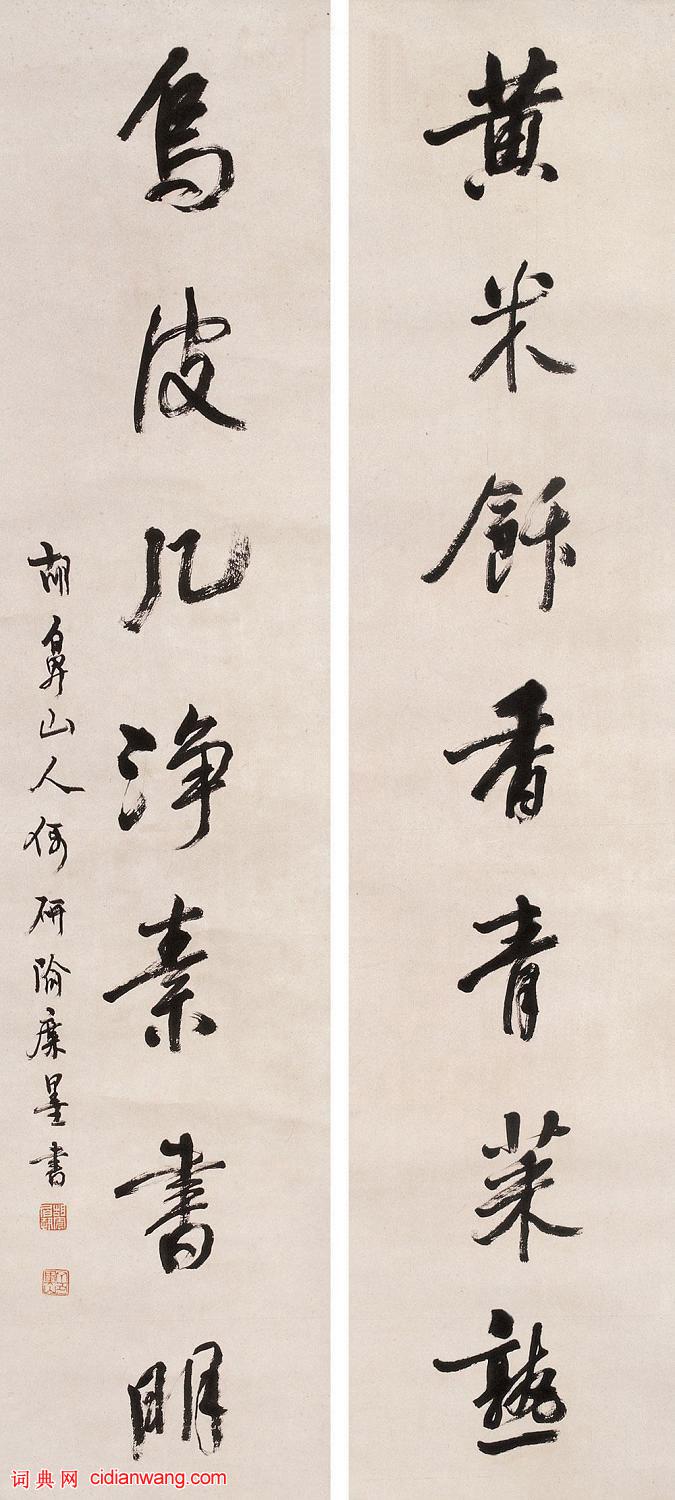 黃米飰香青菜熟
烏皮几淨素書明
胡鼻山人研隃麋墨書
词典网 cidianwang.com